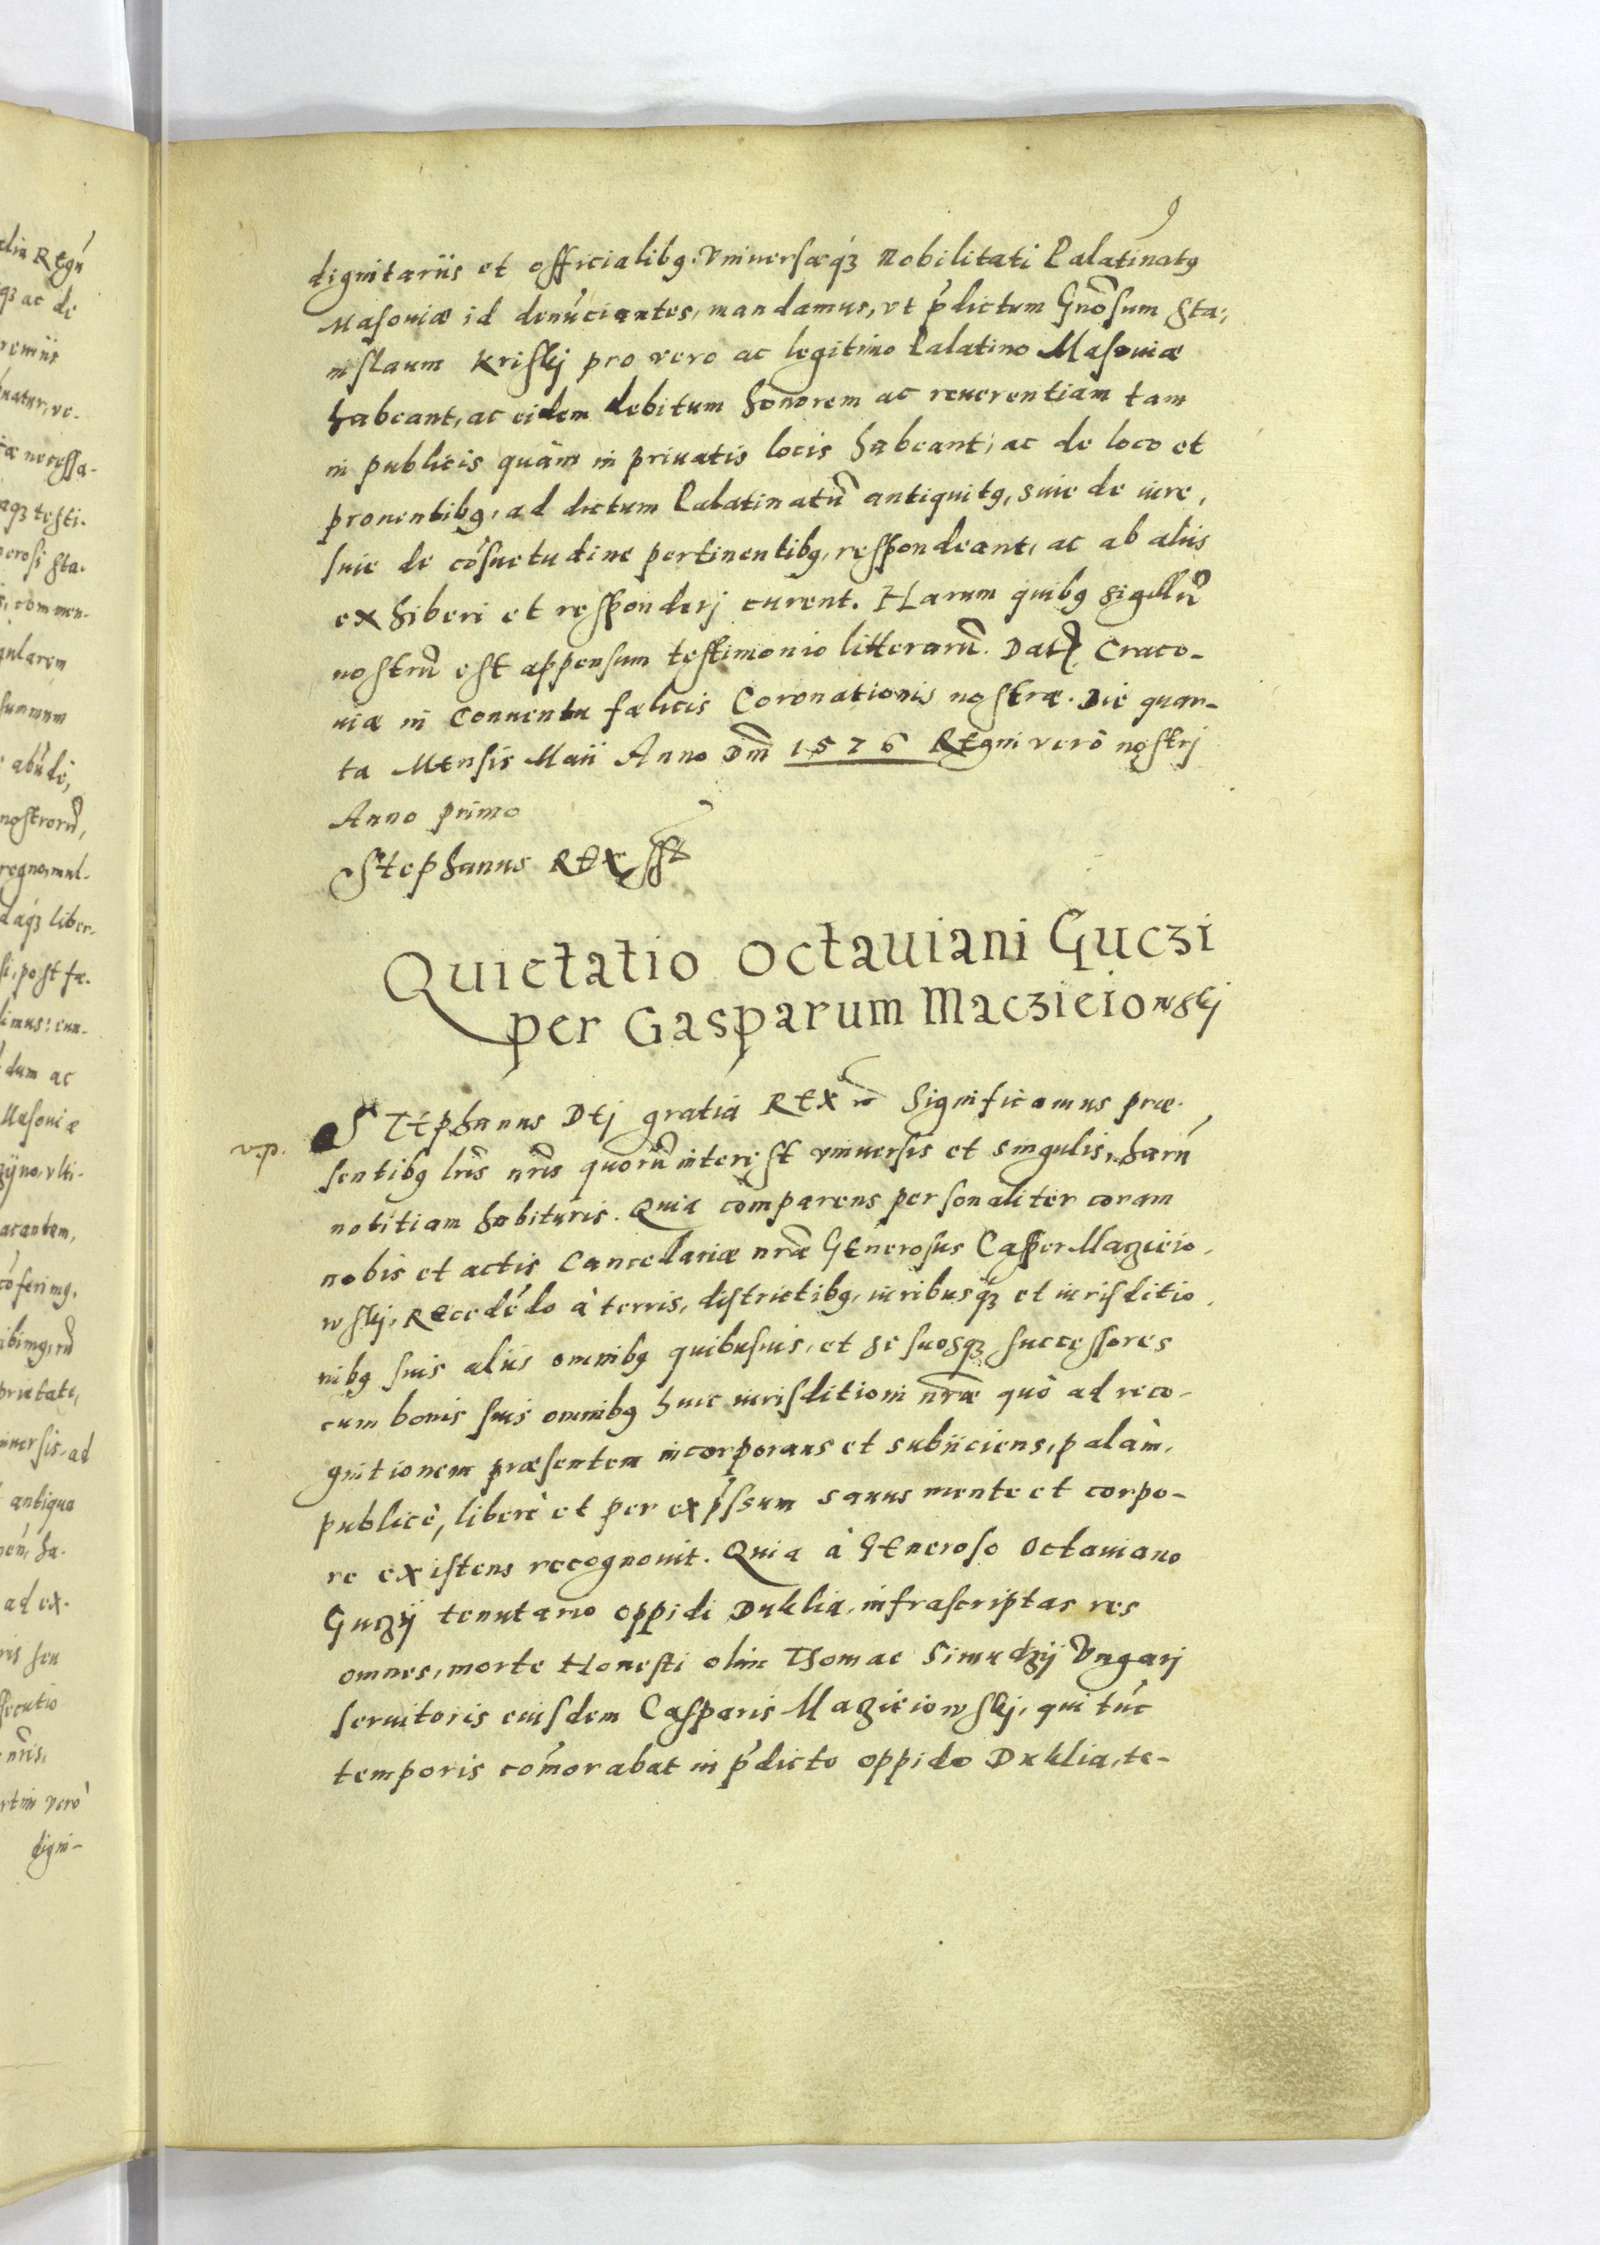 dignitariis et officialibq. Vniuersæqʒ Nobilitati Palatinatq
Masouiæ id denúciantes, mandamus, vt p̃dictum Gnõsum Sta-
nislaum Kriskj pro vero ac legitimo Palatino Masouiæ
habeant, ac eidem debitum honorem ac reuerentiam tam
in publicis quàm in priuatis locis habeant, ac de loco et
prouentibq, ad dictum Palatinatũ antiquitq, siue de iure,
siue de cósuetudine pertinentibq, respondeant, ac ab aliis
exhiberi et responderj curent. Harum quibq sigillũ
nostrũ est appensum testimonio litterarũ. Datꝭ Craco-
uiæ in Conuentu fælicis Coronationis nostræ. Die quar-
ta Mensis Maii Anno Dnĩ 1576 Regni verò nostrj
Anno primo
Stephanus REX sst
Quietatio Octauiani Guczi
per Gasparum Macziciowskj
v.p.
STephanus DEj gratia REX rõ Significamus præ-
sentibq lr̃is nr̃is quorũ interest vniuersis et singulis, harũ
notitiam habituris. Quia comparens personaliter coram
nobis et actis Cancelariæ nr̃æ GEnerosus Casper Mazieio-
wskj, Recedédo à terris, districtibq, iuribusqʒ et iurisditio-
nibq suis aliis omnibq quibusuis, et se suosqʒ successores
cum bonis suis omnibq huic iurisditioni nr̃æ quò ad reco-
gnitionem præsentem incorporans et subiiciens, palàm,
publicè, liberè et per exp̃ssum sanus mente et corpo-
re existens recognouit. Quia à GEneroso Octauiano
Guczij tenutario oppidi Duklia, infrascriptas res
omnes, morte Honesti olim Thomae Simudzij Vngarj
seruitoris eiusdem Casparis Mazieiowskj, qui túc
temporis cómorabat in p̃dicto oppido Duklia, te-